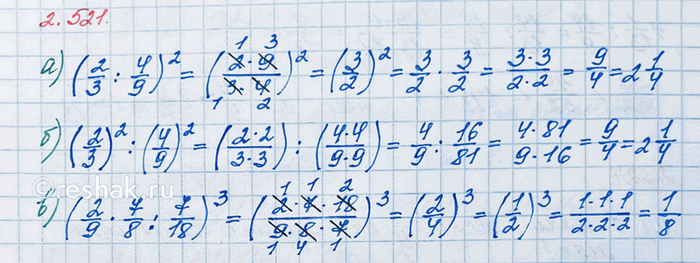 2.521.
а) (2/3 : 4/9)² = (2·9/3·4)² = (3/2)² = 3/2 · 3/2 = 3·3/2·2 = 9/4 = 2 1/4
б) (2/3)² : (4/9)² = (2·2/3·3) : (4·4/9·9) = 4/9 : 16/81 = 4·81/9·16 = 9/4 = 2 1/4
в) (2/9 · 7/8 : 7/18)³ = (2·7·18/9·8·7)³ = (2/4)³ = (1/2)³ = 1·1·1/2·2·2 = 1/8
©reshak.ru